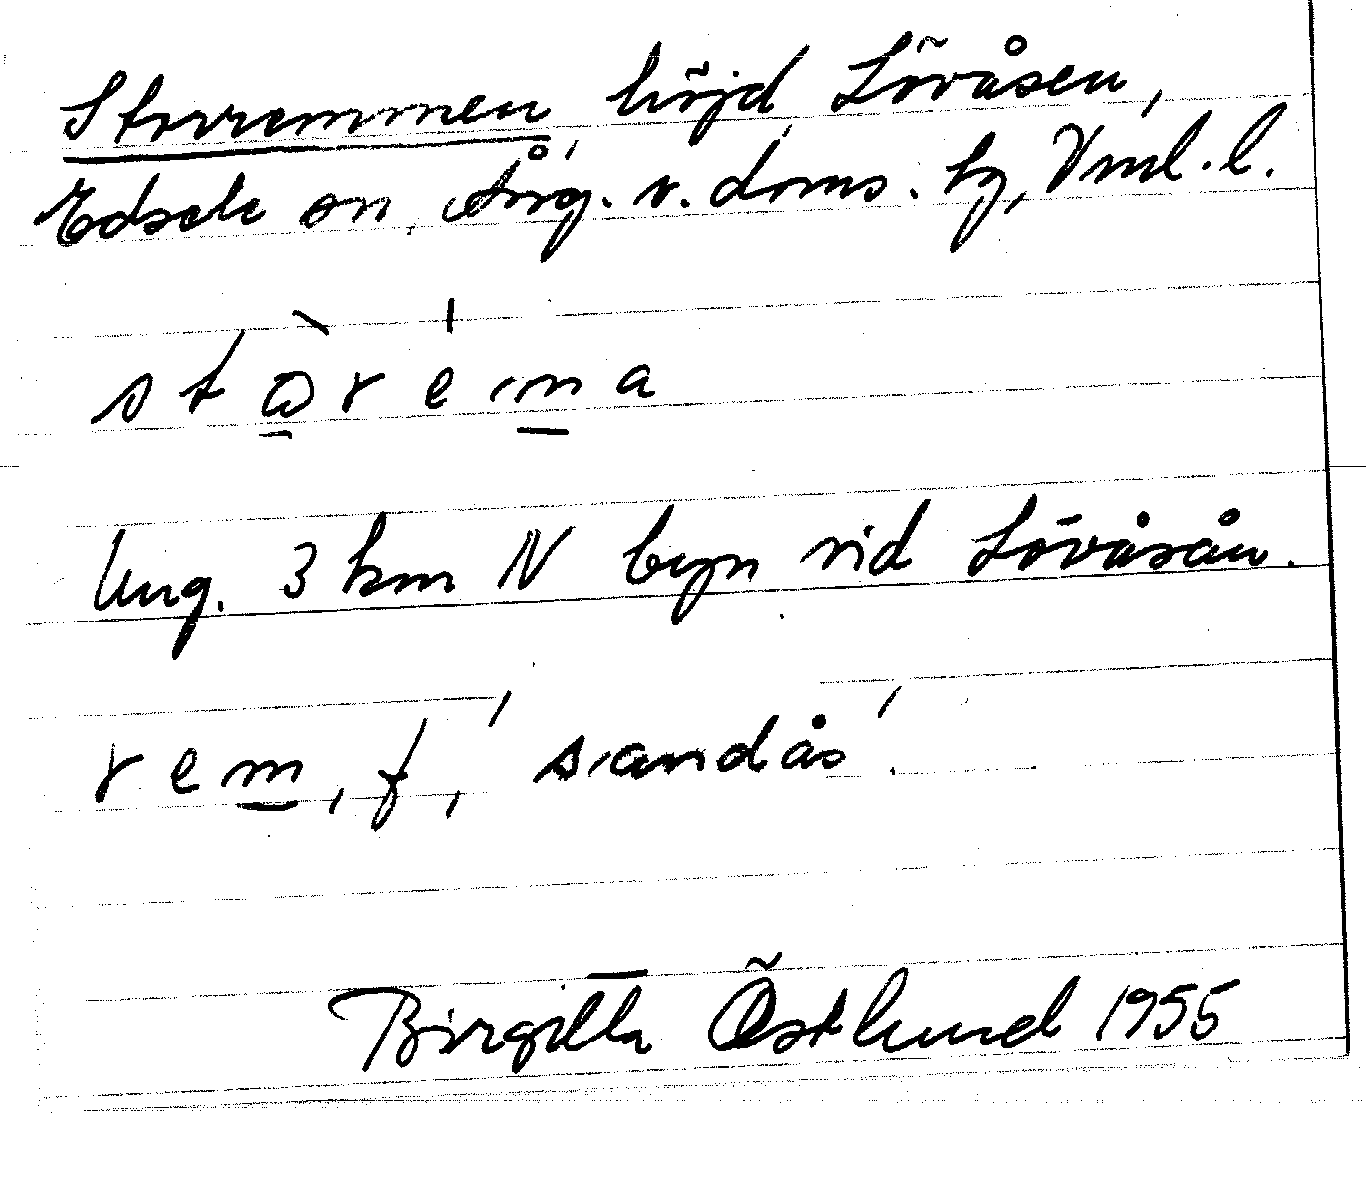 Storremmen höjd Lövåsen,
Edsele sn, Ång. v. doms. hg, Vnl. l.
Ung. 3 km N byn vid Lövåsån.
rem, f, 'sandås'.
Birgitta Östlund 1955